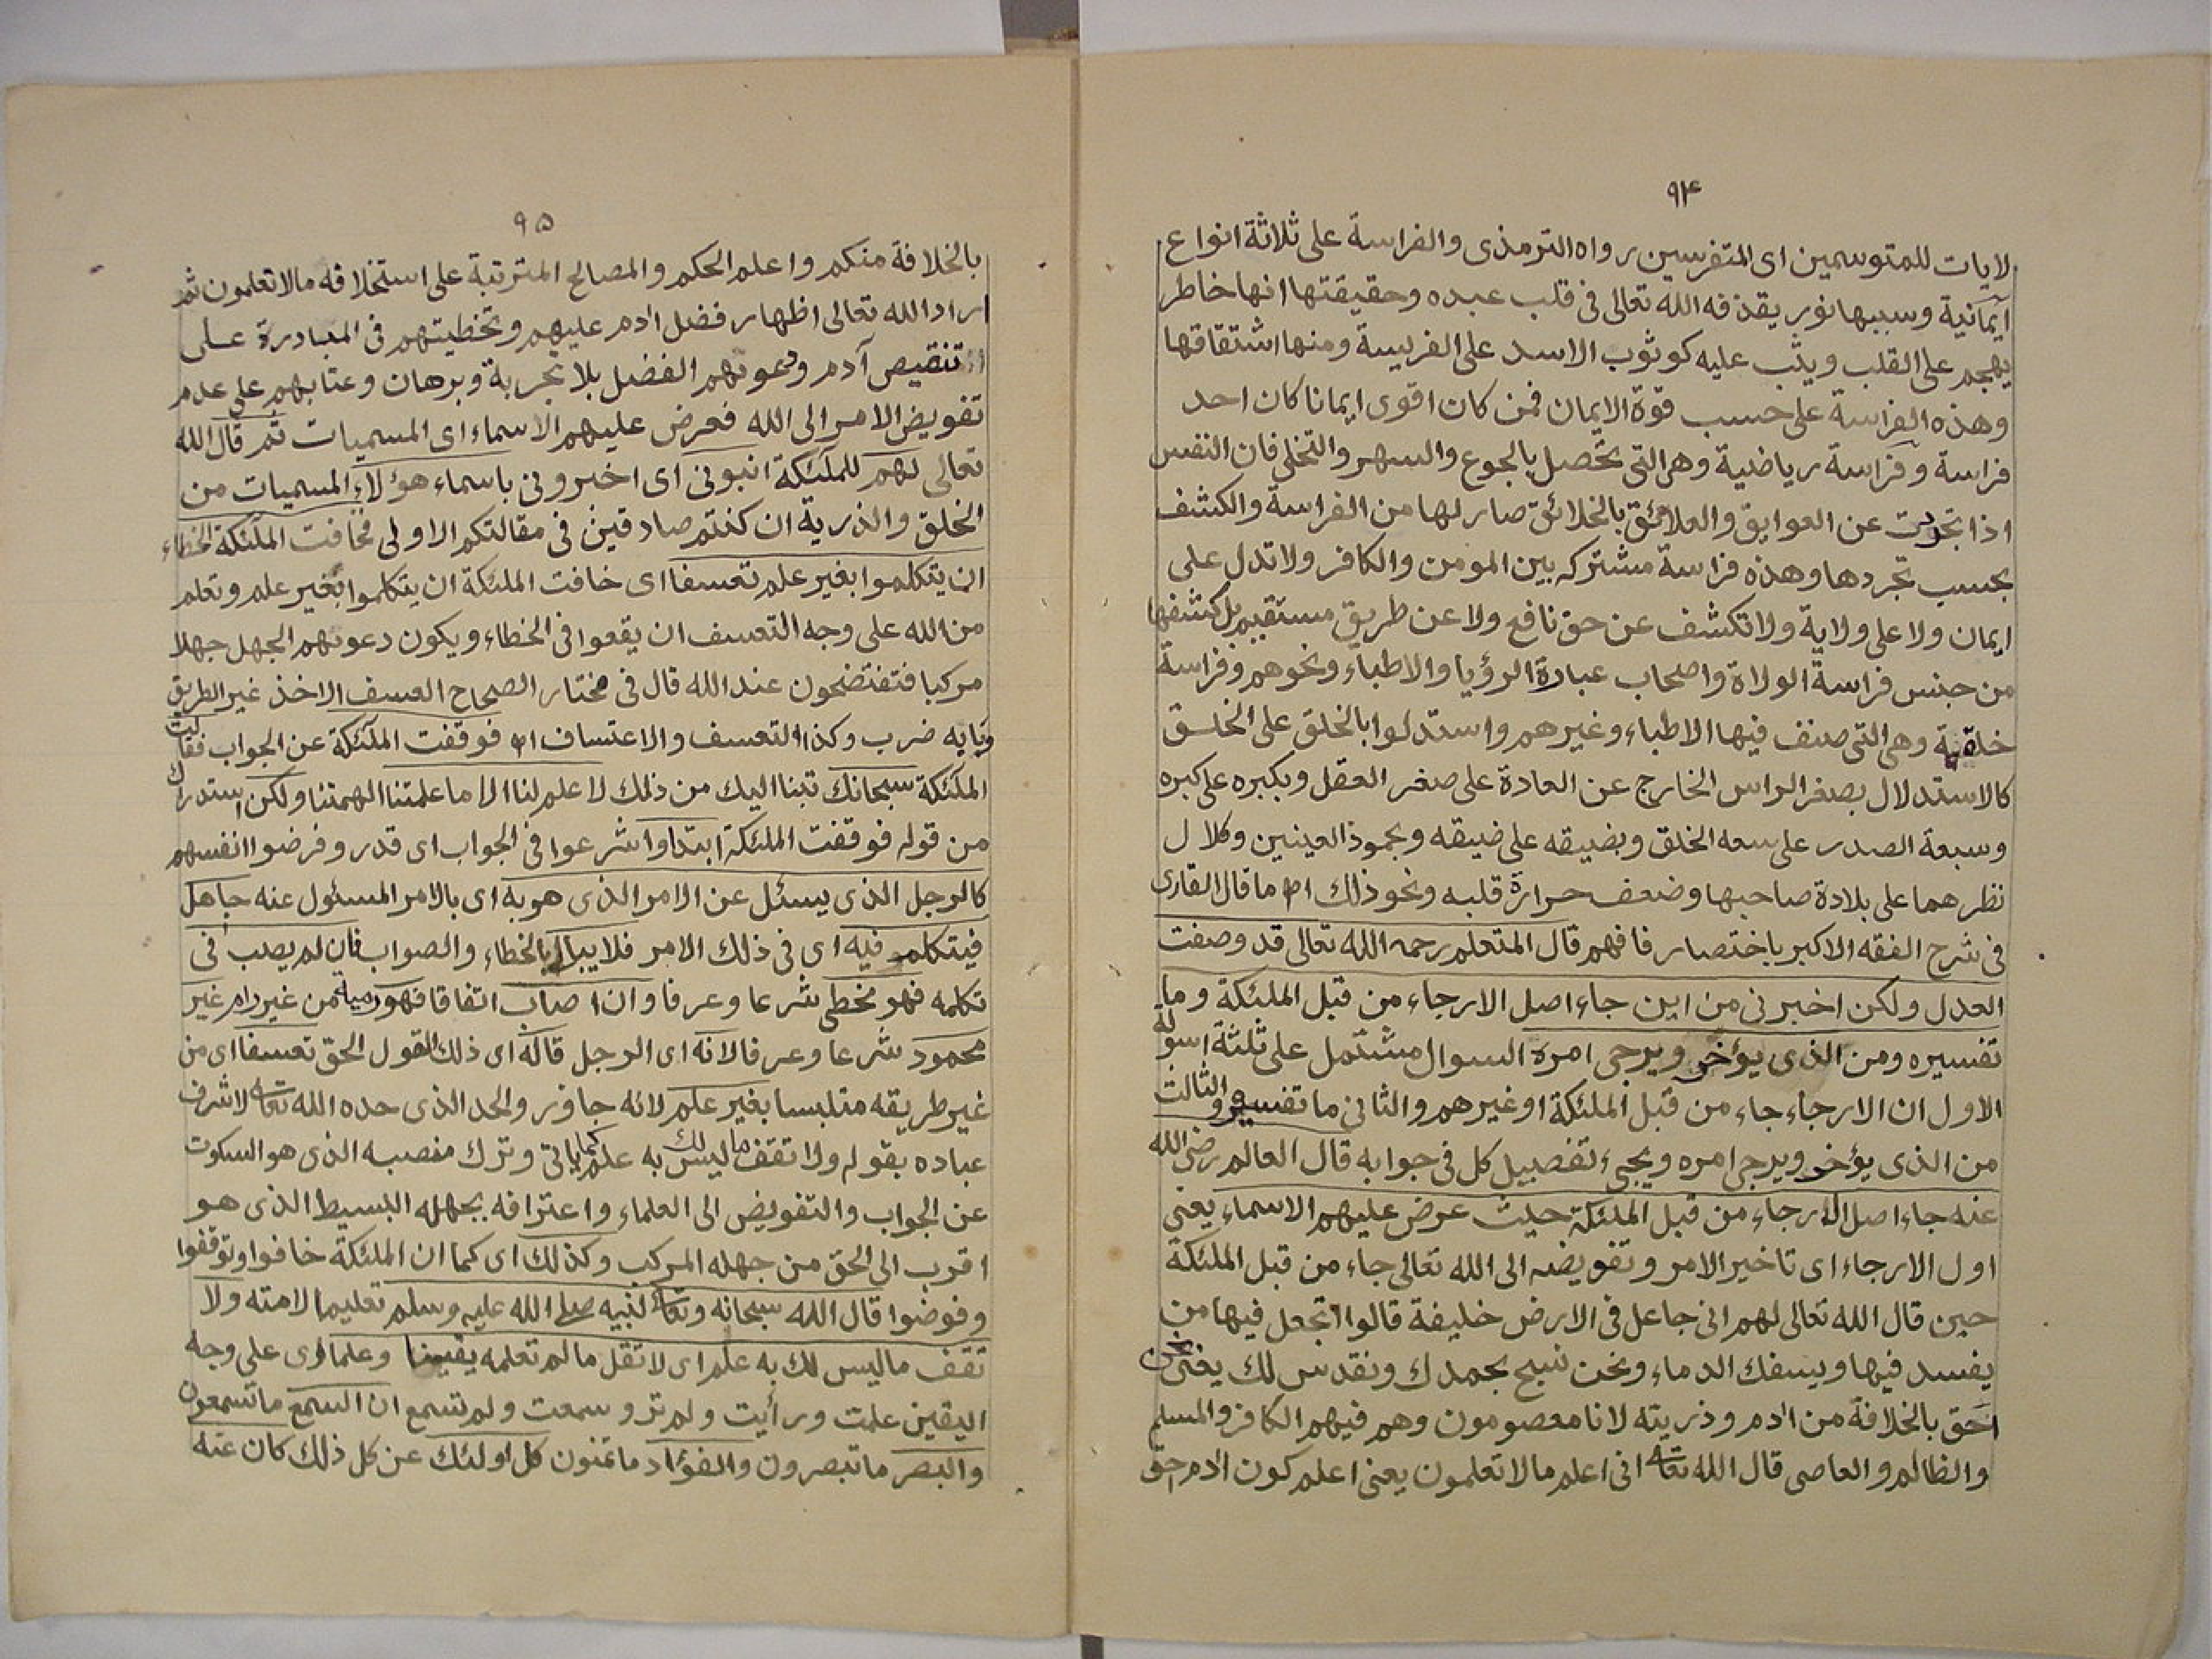 ٩٤
لايات للمتوسمين اى المتفرسين رواه الترمذى والفراسة على ثلاثة انواع
ايمانية وسببها نور يقذفه الله تعالى فى قلب عبده وحقيقتها انها خاطر
يهجم على القلب ويثب عليه كوثوب الاسد على الفريسة ومنها اشتقاقها
وهذه الفراسة على حسب قوة الايمان فمن كان اقوى ايمانا كان احد
فراسة وفراسة رياضية وهى التى تحصل بالجوع والسهر والتخلى فان النفس
اذا تجردت عن العوايق والعلائق بالخلائق صار لها من الفراسة والكشف
بحسب تجردها وهذه فراسة مشتركه بين المومن والكافر ولا تدل على
ايمان ولا على ولاية ولا تكشف عن حق نافع ولا عن طريق مستقيم بل كشفها
من جنس فراسة الولاة واصحاب عبادة الرؤيا والاطباء ونحوهم وفراسة
خلقية وهى التى صنف فيها الاطباء وغيرهم واستدلوا بالخلق على الخلق
كالاستدلال بصغر الراس الخارج عن العادة على صغر العقل وبكبره على كبره
وسعة الصدر على سعه الخلق وبضيقه على ضيقه وبجموذ العينين وكلال
نظرهما على بلادة صاحبها وضعف حرارة قلبه ونحو ذلك اه ما قال القارى
فى شرح الفقه الاكبر باختصار فافهم قال المتعلم رحمه الله تعالى قد وصفت
العدل ولكن اخبرنى من اين جاء اصل الارجاء من قبل الملئكة وما
تفسيره ومن الذى يؤخر ويرجى امره السوال مشتمل على ثلثة اسولة
الاول ان الارجاء جاء من قبل الملئكة او غيرهم والثانى ما تفسيره والثالث
من الذى يؤخر ويرجى امره ويجىء تفصيل كل فى جوابه قال العالم رضى الله
عنه جاء اصل الارجاء من قبل الملئكة حيث عرض عليهم الاسماء يعنى
اول الارجاء اى تاخير الامر وتفويضه الى الله تعالى جاء من قبل الملئكة
حين قال الله تعالى لهم انى جاعل فى الارض خليفة قالوا اتجعل فيها من
يفسد فيها ويسفك الدماء ونحن نسبح بحمدك ونقدس لك يعنى نحن
احق بالخلافة من ادم وذريته لانا معصومون وهم فيهم الكافر والمسلم
والظالم والعاصى قال الله تعا انى اعلم مالا تعلمون يعنى اعلم كون ادم احق
٩٥
بالخلافة منكم واعلم الحكم والمصالح المترتبة على استخلافه مالا تعلمون ثم
اراد الله تعالى اظهار فضل ادم عليهم وتخطيتهم فى المبادرة على
تنقيص آدم ودعوتهم الفضل بلا تجربة وبرهان وعتابهم على عدم
تفويض الامر الى الله فعرض عليهم الاسماء اى المسميات ثم قال الله
تعالى لهم للملئكة انبونى اى اخبرونى باسماء هؤلاء المسميات من
الخلق والذرية ان كنتم صادقين فى مقالتكم الاولى فخافت الملئكة الخطاء
ان يتكلموا بغير علم تعسفا اى خافت الملئكة ان يتكلموا بغير علم وتعلم
من الله على وجه التعسف ان يقعوا فى الخطاء ويكون دعوتهم الجهل جهلا
مركبا فتفتضحون عند الله قال فى مختار الصحاح العسف الاخذ غير الطريق
وبابه ضرب وكذا التعسف والاعتساف اه فوقفت الملئكة عن الجواب فقالت
الملئكة سبحانك تبنا اليك من ذلك لا علم لنا الا ما علمتنا الهمتنا ولكن استدراك
من قوله فوقفت الملئكة ابتداوا شرعوا فى الجواب اى قدر وفرضوا انفسهم
كالرجل الذى يسئل عن الامر الذى هو به اى بالامر المسئول عنه جاهل
فيتكلم فيه اى فى ذلك الامر فلا يبالى بالخطاء والصواب فان لم يصب فى
تكلمه فهو مخطى شرعا وعرفا وان اصاب اتفاقا فهو رمية من غير رام غير
محمود شرعا وعرفا لانه اى الرجل قاله اى ذلك القول الحق تعسفا اى من
غير طريقه متلبسا بغير علم لانه جاوز والحد الذى حده الله تعا لاشرف
عباده بقوله ولا تقف ما ليس لك به علم كما ياتى وترك منصبه الذى هو السكوت
عن الجواب والتفويض الى العلماء واعترافه بجهله البسيط الذى هو
اقرب الى الحق من جهله المركب وكذلك اى كما ان الملئكة خافوا وتوقفوا
وفوضوا قال الله سبحانه وتعا لنبيه صلى الله عليه وسلم تعليما لامته ولا
تقف ما ليس لك به علم اى لا تقل ما لم تعلمه يقينا وعلما اى على وجه
اليقين علمت ورأيت ولم تر وسمعت ولم تسمع ان السمع ما تسمعون
والبصر ما تبصرون والفؤاد ما تمنون كل اولئك عن كل ذلك كان عنه